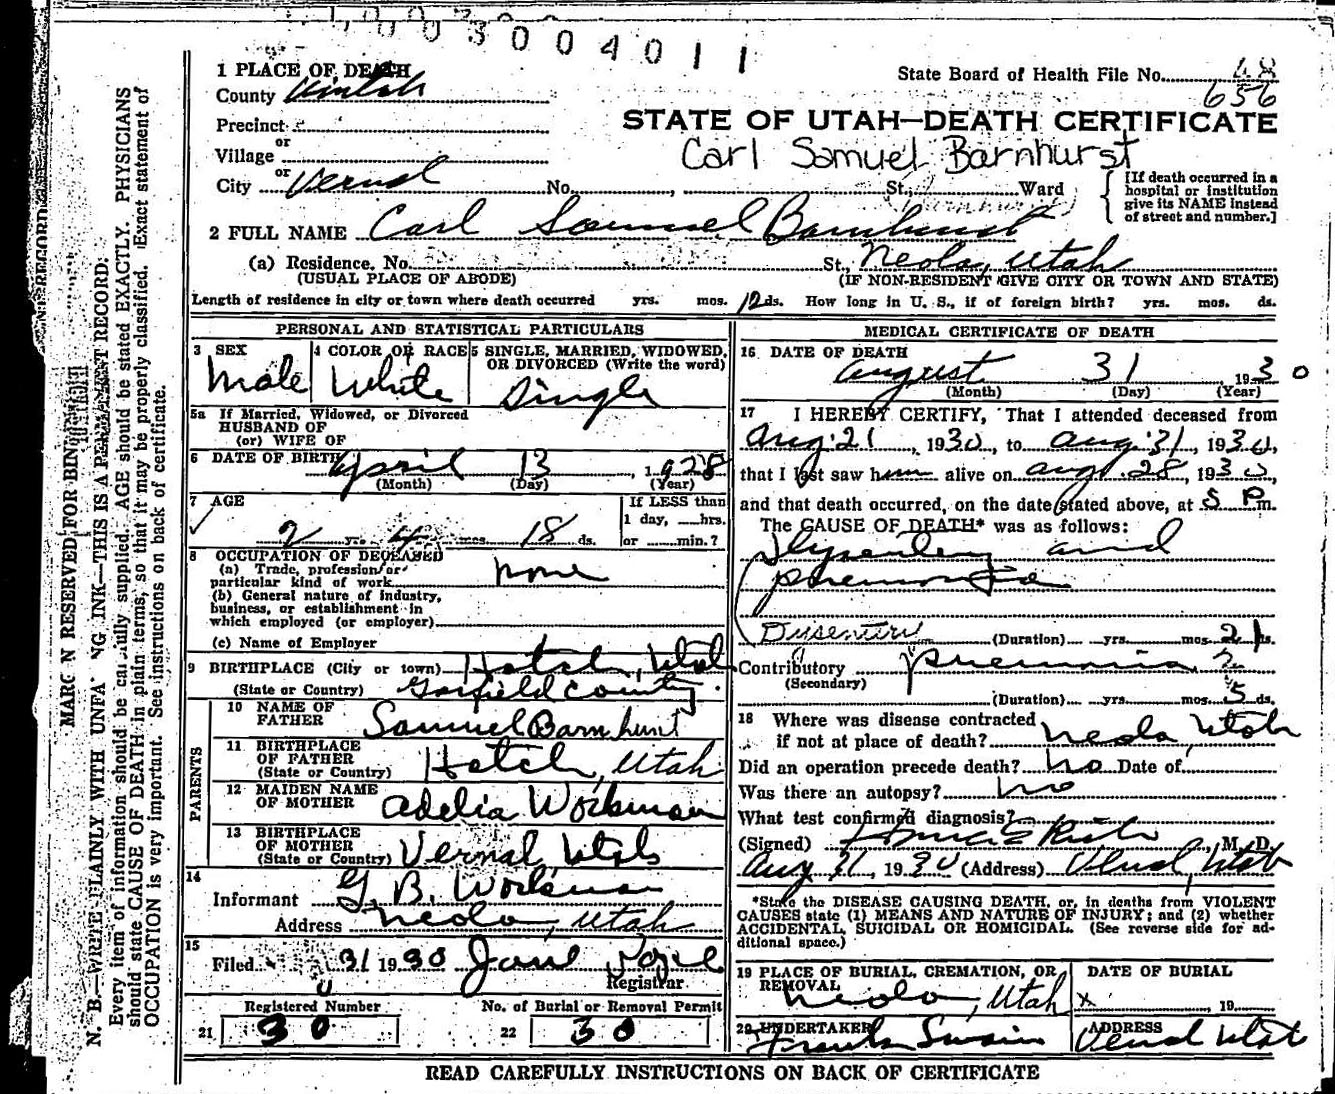 1003004011
1 PLACE OF DEATH
County Uintah
State Board of Health File No. 48
656
Precinct
or
Village
or
City Vernal No. , St., Ward
STATE OF UTAH—DEATH CERTIFICATE
Carl Samuel Barnhurst
[If death occurred in a hospital or institution give its NAME instead of street and number.]
2 FULL NAME Carl Samuel Barnhurst
(Barnhurst)
(a) Residence, No. St. Neola, Utah
(USUAL PLACE OF ABODE) (IF NON-RESIDENT GIVE CITY OR TOWN AND STATE)
Length of residence in city or town where death occurred yrs. mos. 12 ds. How long in U. S., if of foreign birth? yrs. mos. ds.
PERSONAL AND STATISTICAL PARTICULARS
3 SEX 4 COLOR OR RACE 5 SINGLE, MARRIED, WIDOWED, OR DIVORCED (Write the word)
Male White Single
5a If Married, Widowed, or Divorced
HUSBAND OF
(or) WIFE OF
6 DATE OF BIRTH April 13, 1928
(Month) (Day) (Year)
7 AGE If LESS than
1 day, hrs.
2 yrs. 4 mos. 18 ds. or min.?
8 OCCUPATION OF DECEASED
(a) Trade, profession or
particular kind of work none
(b) General nature of industry,
business, or establishment in
which employed (or employer)
(c) Name of Employer
9 BIRTHPLACE (City or town) Hatch, Utah
(State or Country) Garfield County
PARENTS
10 NAME OF
FATHER Samuel Barnhurst
11 BIRTHPLACE
OF FATHER
(State or Country) Hatch, Utah
12 MAIDEN NAME
OF MOTHER Adelia Workman
13 BIRTHPLACE
OF MOTHER
(State or Country) Vernal Utah
14
Informant G. B. Workman
Address Neola, Utah
15
Filed 31 1930 Jane
Registrar.
Registered Number No. of Burial or Removal Permit
21 30 22 30
MEDICAL CERTIFICATE OF DEATH
16 DATE OF DEATH
August 31 1930
(Month) (Day) (Year)
17 I HEREBY CERTIFY, That I attended deceased from
Aug. 21, 1930, to Aug. 31, 1930,
that I last saw him alive on Aug. 28, 1930,
and that death occurred, on the date stated above, at 5 P.m.
The CAUSE OF DEATH* was as follows:
Dysentery and
pneumonia
Dysentery (Duration) yrs. mos. 21 ds.
Contributory pneumonia,
(Secondary)
(Duration) yrs. mos. 5 ds.
18 Where was disease contracted
if not at place of death? Neola, Utah
Did an operation precede death? no Date of
Was there an autopsy? no
What test confirmed diagnosis?
(Signed) M. D.
Aug 31, 1930 (Address) Vernal, Utah
*State the DISEASE CAUSING DEATH, or, in deaths from VIOLENT
CAUSES state (1) MEANS AND NATURE OF INJURY; and (2) whether
ACCIDENTAL, SUICIDAL OR HOMICIDAL. (See reverse side for ad-
ditional space.)
19 PLACE OF BURIAL, CREMATION, OR
REMOVAL
Neola, Utah
DATE OF BURIAL
x , 19
20 UNDERTAKER
Frank Swain
ADDRESS
Vernal Utah
READ CAREFULLY INSTRUCTIONS ON BACK OF CERTIFICATE
MARGIN RESERVED FOR BINDING
N. B.—WRITE PLAINLY WITH UNFADING INK—THIS IS A PERMANENT RECORD.
Every item of information should be carefully supplied. AGE should be stated EXACTLY. PHYSICIANS
should state CAUSE OF DEATH in plain terms, so that it may be properly classified. Exact statement of
OCCUPATION is very important. See instructions on back of certificate.